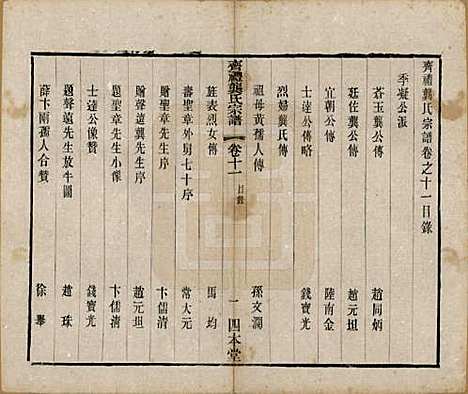 齊禮龔氏宗譜卷之十一目錄
季凝公派
蒼玉龔公傳 趙同炳
廷佐龔公傳 趙元坦
宜朝公傳 陸南金
士達公傳略 錢寶光
烈婦龔氏傳
祖母黃孺人傳 孫文瀾
齊禮龔氏宗譜 卷十一 目錄 一 四本堂
旌表烈女傳 馬均
壽聖章外舅七十序 常大元
贈聖章先生序 卞儒清
贈聲遠龔先生序 趙元坦
題聖章先生小像 卞儒清
士達公像贊 錢寶光
題聲遠先生放牛圖 趙珠
薛卞兩孺人合贊 徐舉